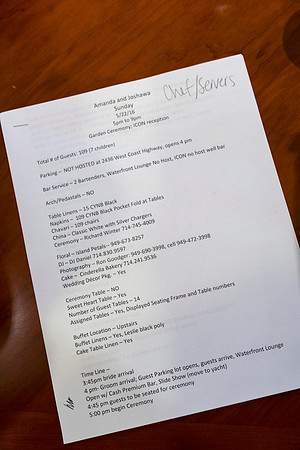 Chef/Servers
Amanda and Joshawa
Sunday
5/22/16
5pm to 9pm
Garden Ceremony, ICON reception
Total # of Guests: 109 (7 children)
Parking – NOT HOSTED at 2436 West Coast Highway, opens 4 pm
Bar Service – 2 Bartenders, Waterfront Lounge No Host, ICON no host well bar
Arch/Pedastals – NO
Table Linens – 15 CYNB Black
Napkins – 109 CYNB Black Pocket Fold at Tables
Chavari – 109 chairs
China – Classic White with Silver Chargers
Ceremony – Richard Winter 714-745-4009
Floral – Island Petals– 949-673-8257
DJ – DJ Daniel 714.830.9597
Photography – Ron Goodger: 949-690-3998, cell 949-472-3998
Cake – Cinderella Bakery 714.241.9536
Wedding Décor Pkg. – Yes
Ceremony Table – NO
Sweet Heart Table – Yes
Number of Guest Tables – 14
Assigned Tables – Yes, Displayed Seating Frame and Table numbers
Buffet Location – Upstairs
Buffet Linens – Yes, Leslie black poly
Cake Table Linen – Yes
Time Line –
3:45pm bride arrival
4 pm- Groom arrival; Guest Parking lot opens, guests arrive, Waterfront Lounge
Open w/ Cash Premium Bar, Slide Show (move to yacht)
4:45 pm guests to be seated for ceremony
5:00 pm begin Ceremony